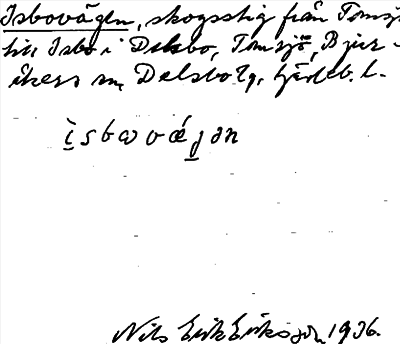 Isbovägen, skogsstig från Tomsjö
till Isbo i Delsbo, Tomsjö, Bjur-
åkers sn, Delsbo tg,
ìsbωvǽgən
Nils Erik Eriksson 1936.